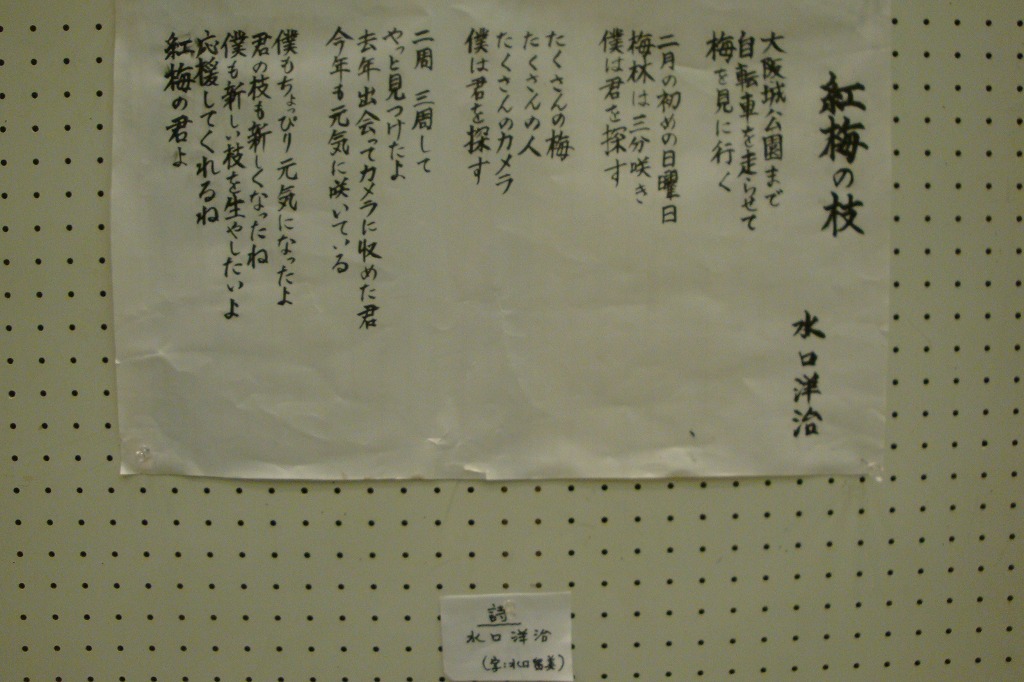 紅梅の枝
水口洋治
大阪城公園まで
自転車を走らせて
梅を見に行く
二月の初めの日曜日
梅林は三分咲き
僕は君を探す
たくさんの梅
たくさんの人
たくさんのカメラ
僕は君を探す
二周 三周して
やっと見つけたよ
去年出会ってカメラに収めた君
今年も元気に咲いている
僕もちょっぴり元気になったよ
君の枝も新しくなったね
僕も新しい枝を生やしたいよ
応援してくれるね
紅梅の君よ
詩
水口洋治
(字:水口留美)